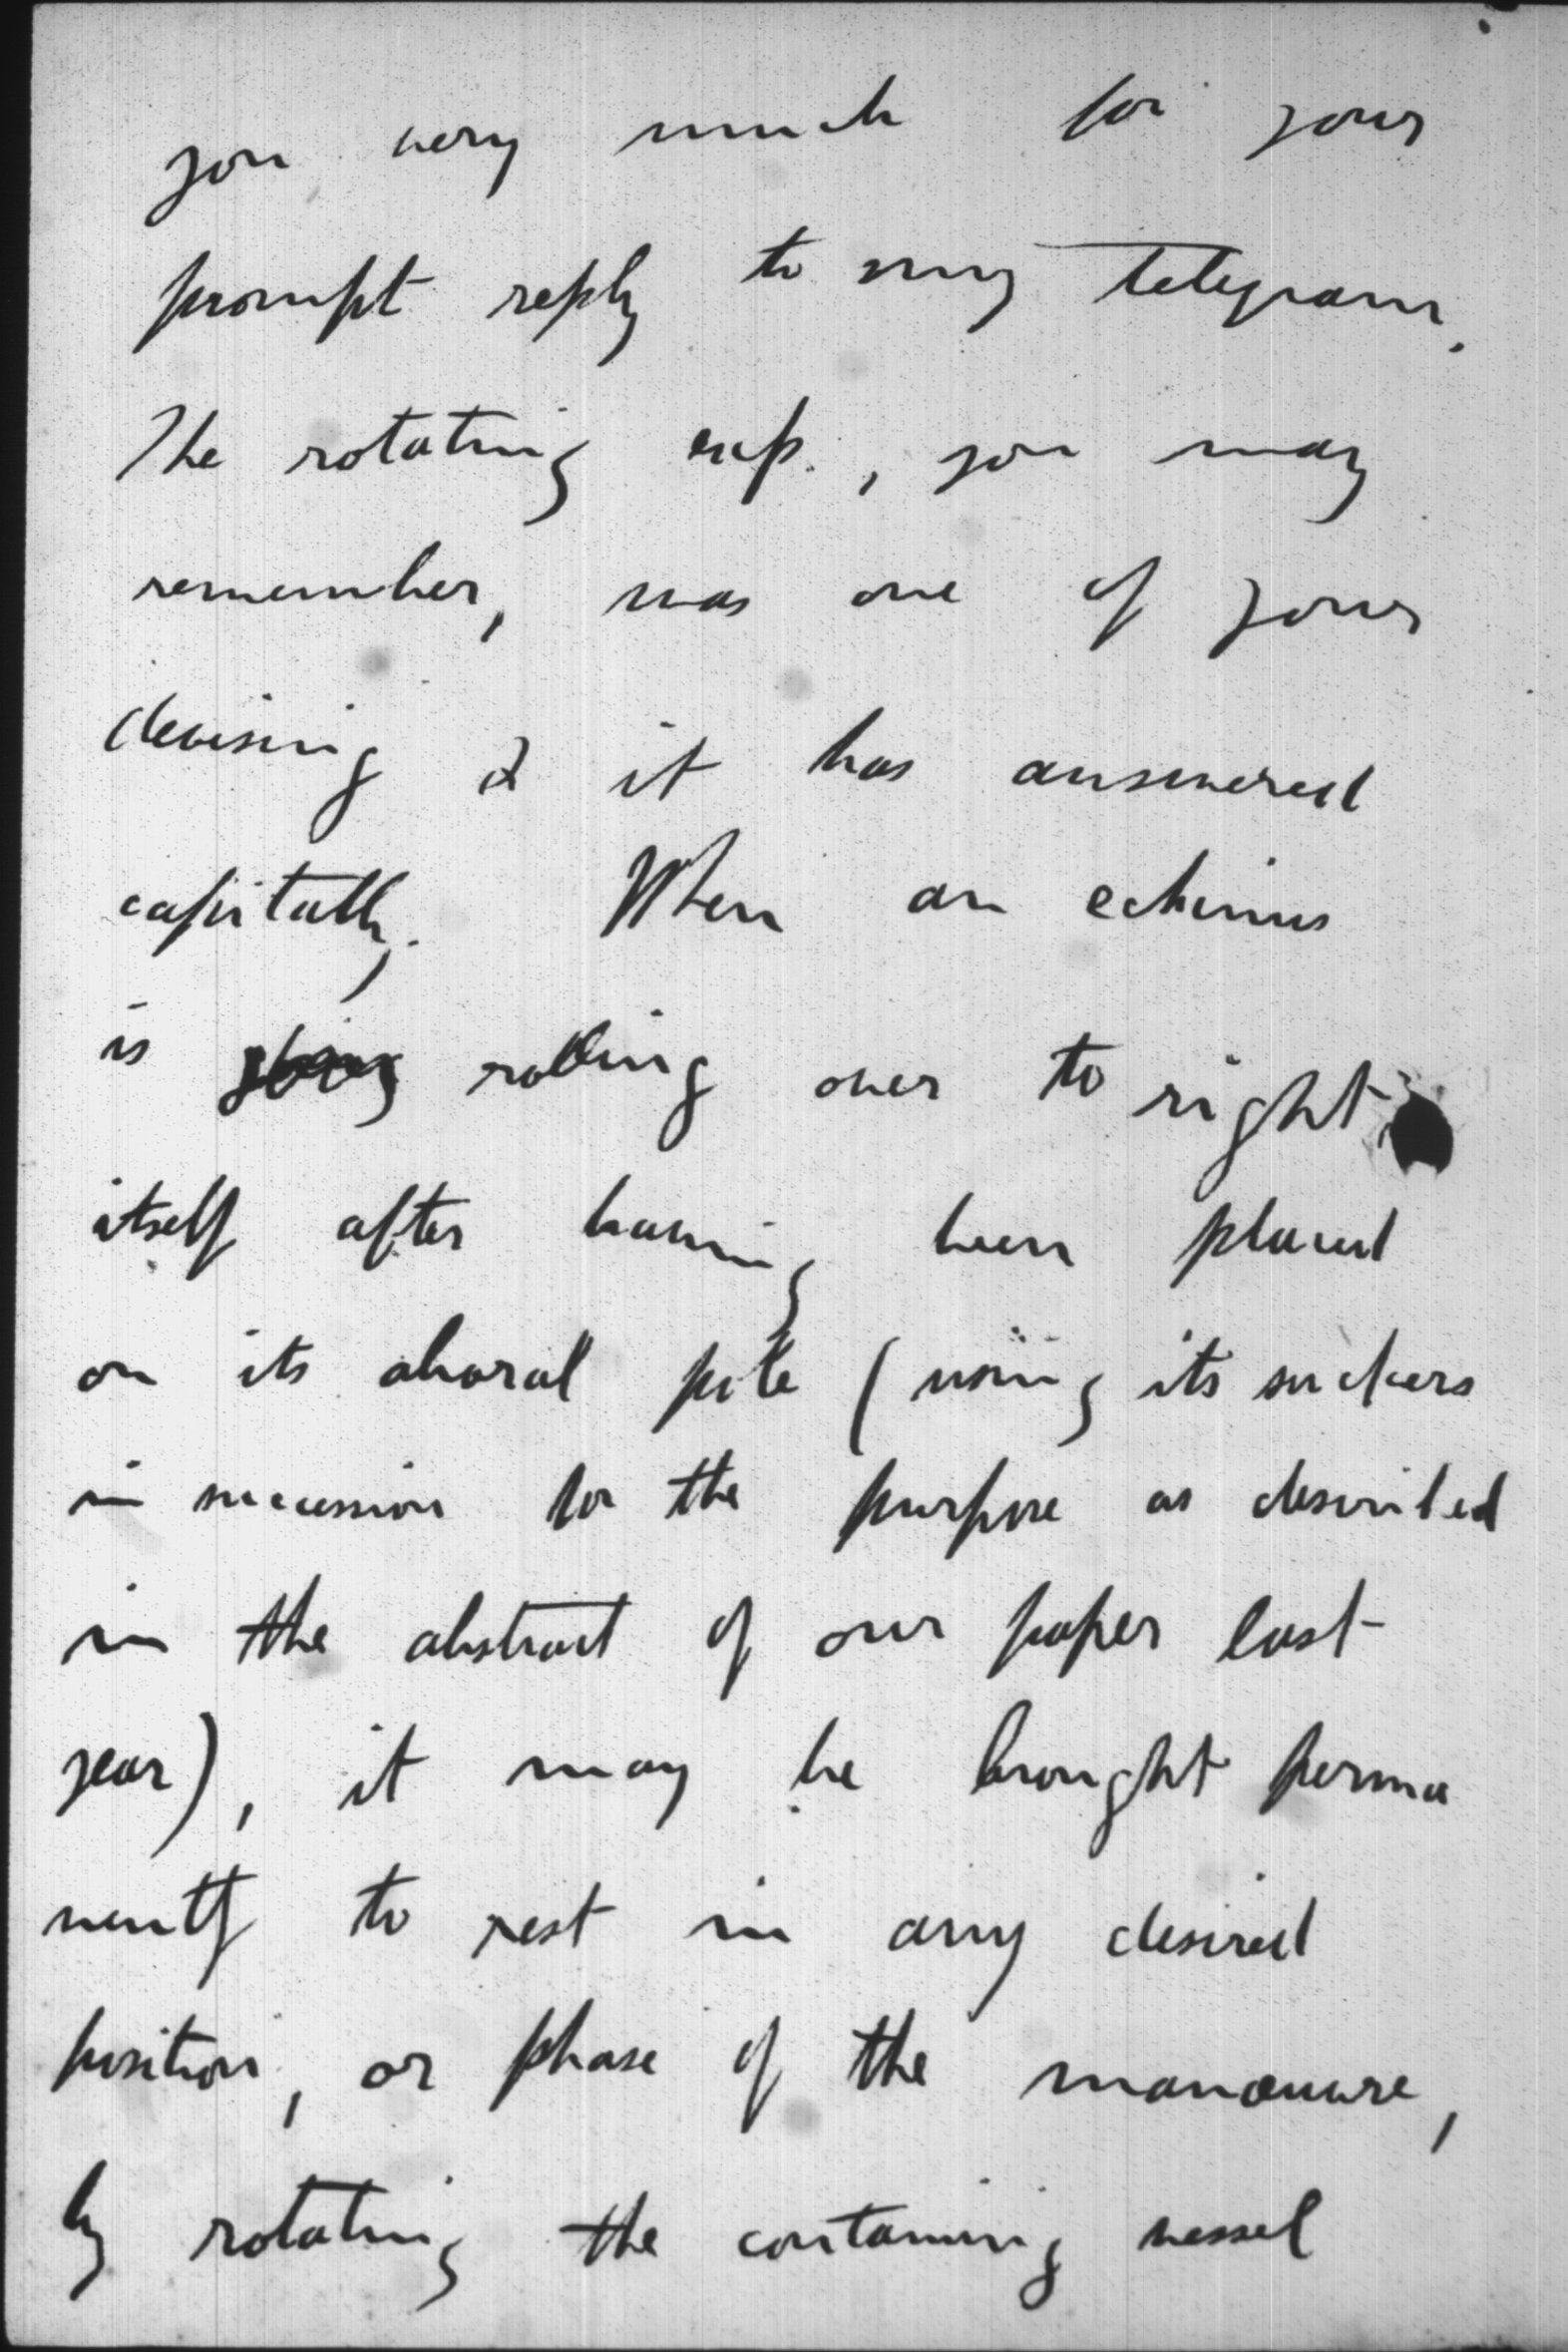 you very much for your
prompt reply to my telegram.
The rotating exp., you may
remember, was one of your
devising & it has answered
capitally. When an echinus
is rolling over to right
itself after having been placed
on its aboral pole (using its suckers
in succession for the purpose as described
in the abstract of our paper last
year), it may be brought perma
nently to rest in any desired
position, or phase of the manœuvre,
by rotating the containing vessel